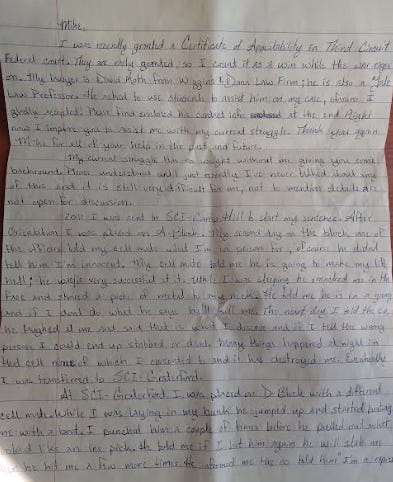 Mike,
I was recently granted a Certificate of Appealability in Third Circuit
Federal court. They are rarely granted, so I count it as a win while the war rages
on. My lawyer is David Roth from Wiggins & Dana Law Firm; he is also a Yale
Law Professor. He asked to use students to assist him on my case, of course I
gladly accepted. Please find enclosed his contact info at the end. Right
now I implore you to assist me with my current struggle. Thank you again
Mike for all of your help in the past and future.
My current struggle has no weight without me giving you some
background. Please understand until just recently I've never talked about any
of this and it is still very difficult for me, not to mention details are
not open for discussion.
2011 I was sent to SCI-Camp Hill to start my sentence. After
Orientation I was placed on A Block. My second day on the block one of
the officers told my cell mate what I'm in prison for, of course he didn't
tell him I'm innocent. My cell mate told me he is going to make my life
hell; he was very successful at it. While I was sleeping he punched me in the
face and shoved a piece of metal to my neck. He told me he is in a gang
and if I don't do what he says he'll kill me. The next day I told the co
he laughed at me and said that is what I deserve and if I tell the wrong
person I could end up stabbed or dead. Many things happened at night in
that cell none of which I consented to and it has destroyed me. Eventually
I was transferred to SCI-Graterford.
At SCI-Graterford I was placed on D Block with a different
cell mate. While I was laying in my bunk he jumped up and started
me with a boot. I punched him a couple of times before he pulled out what
looked like an ice pick. He told me if I hit him again he will stab me
he hit me a few more times. He me the co told him "I'm a